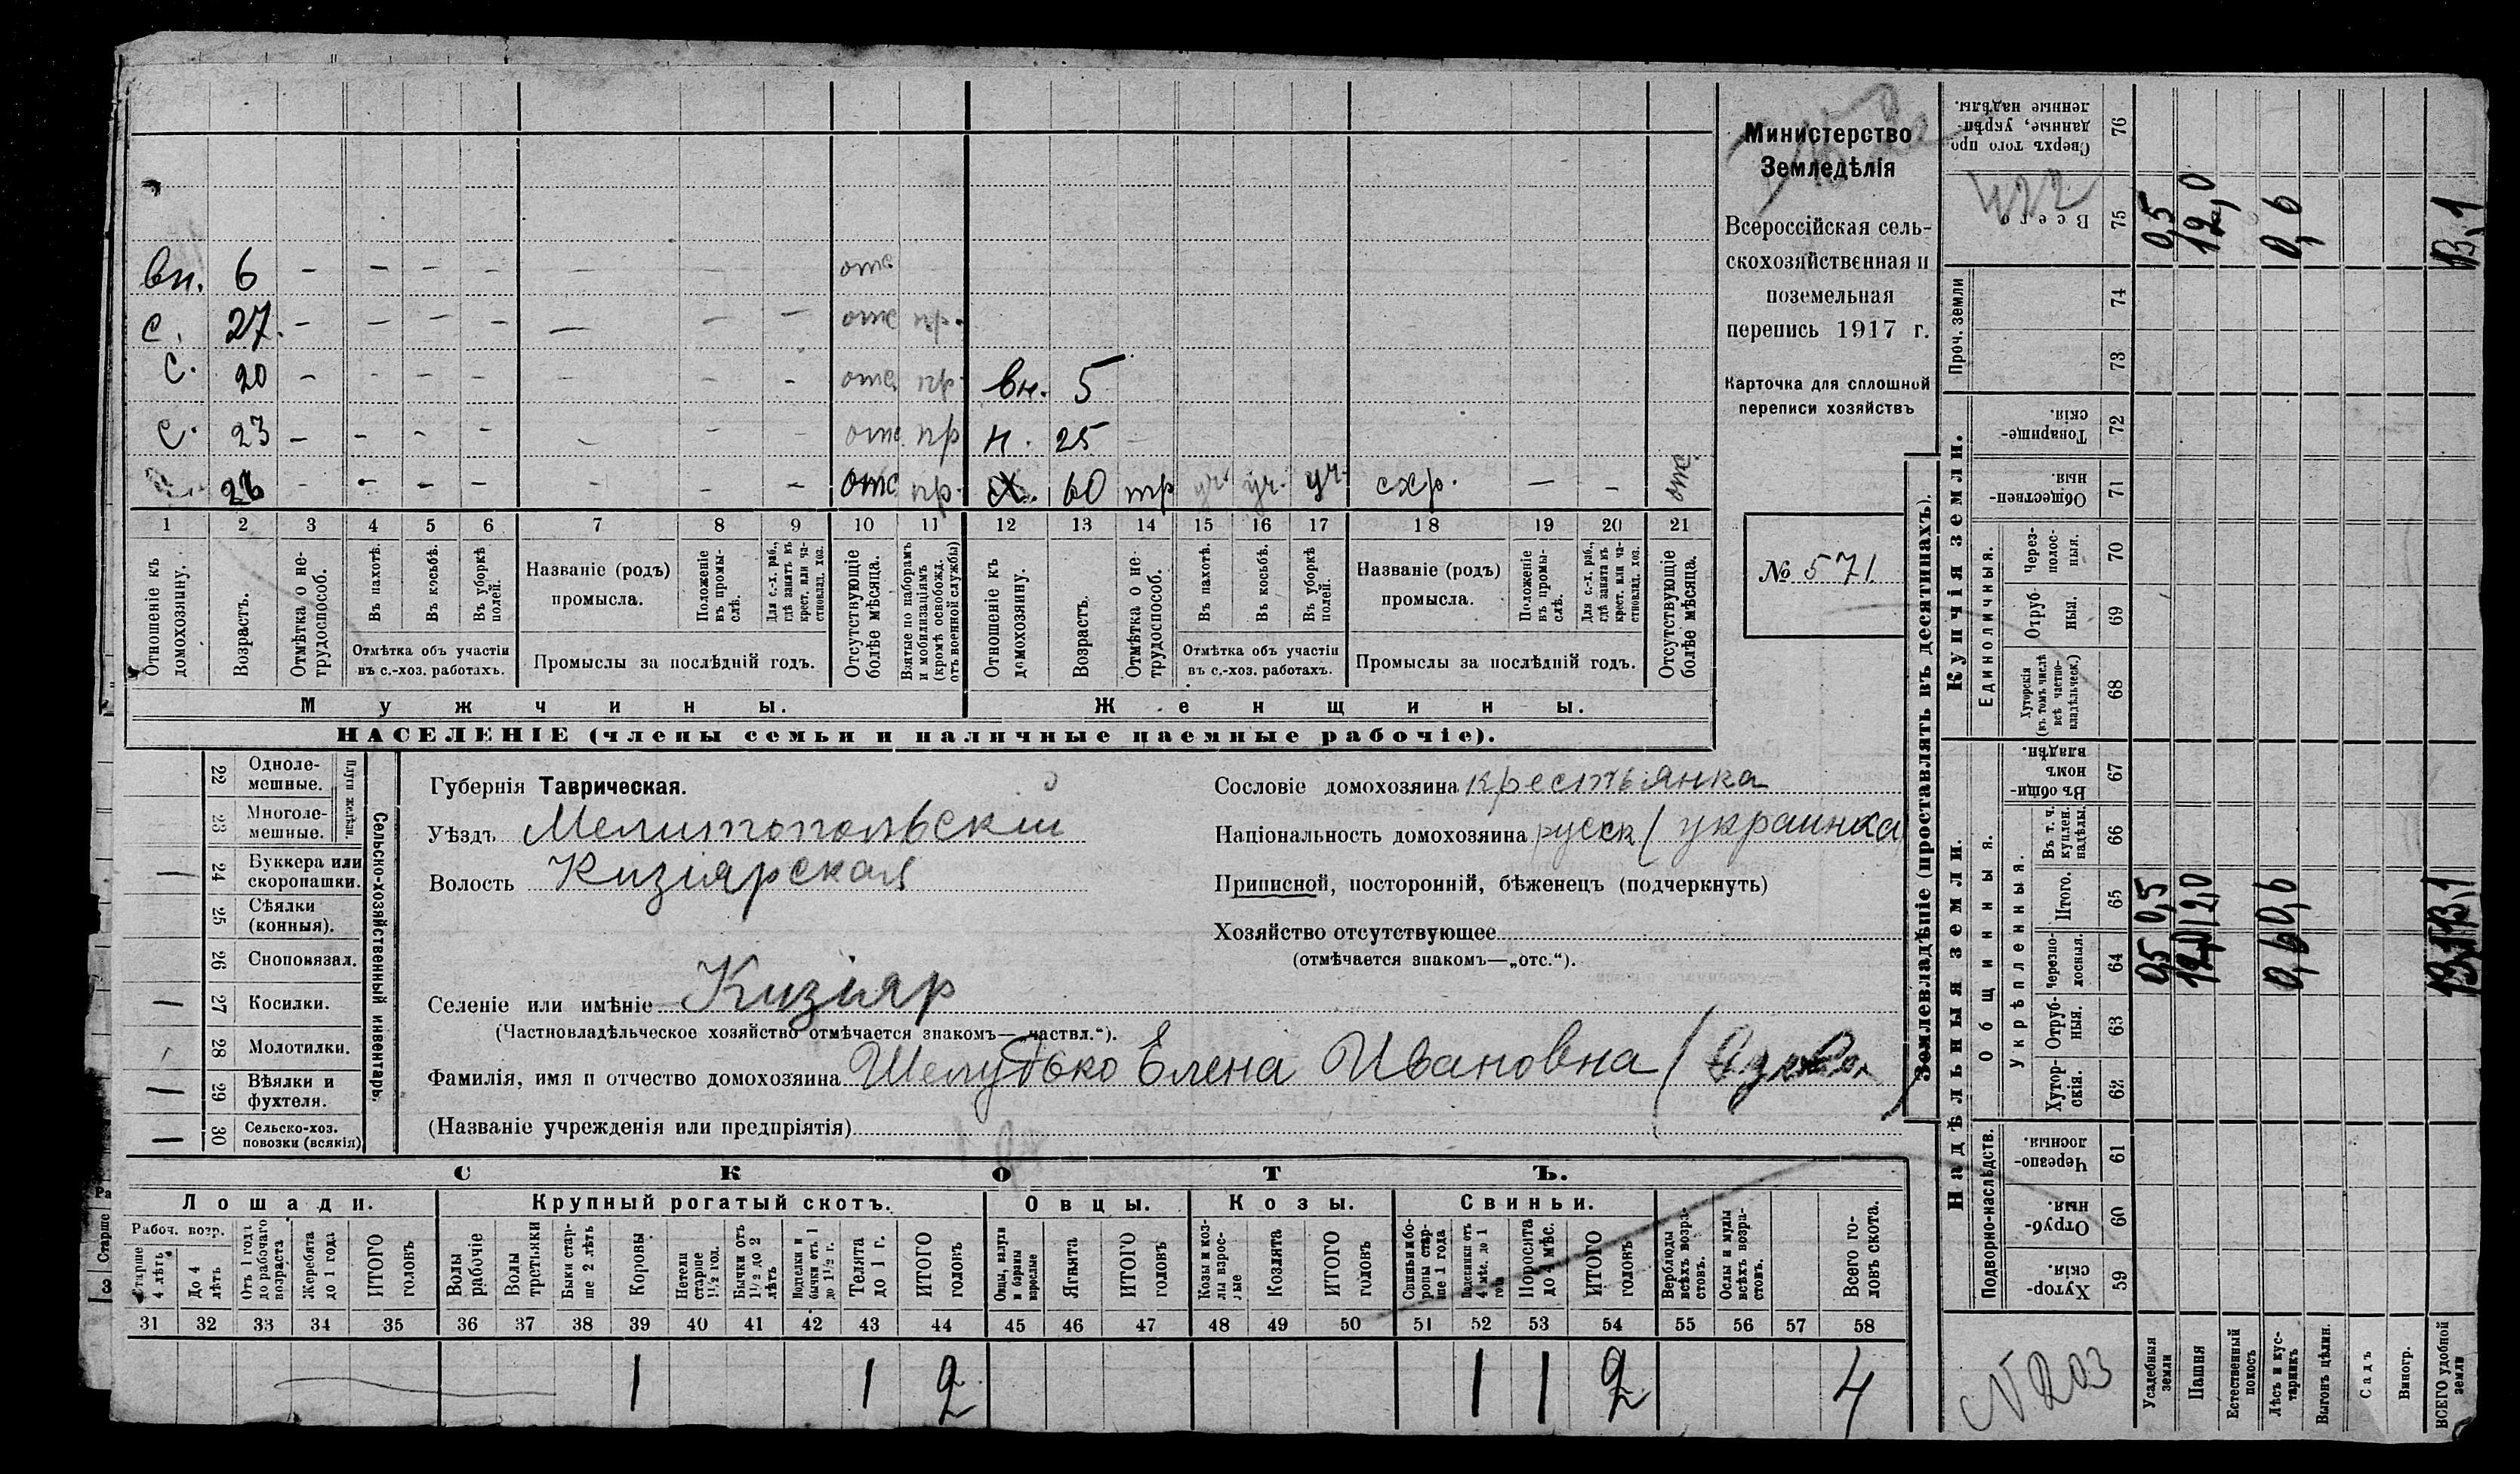 вн. 6 — — — — — — — отс
с. 27. — — — — — — — отс пр.
с. 20 — — — — — — — отс пр. вн. 5
с. 23 — — — — — — — отс пр н. 25 —
26 — — — — — — — отс пр. х. 60 тр уч. уч. уч. схр. — — отс
1 2 3 4 5 6 7 8 9 10 11 12 13 14 15 16 17 18 19 20 21
Отношеніе къ домохозяину.
Возрастъ.
Отмѣтка о нетрудоспособ.
Въ пахотѣ.
Въ косьбѣ.
Въ уборкѣ полей.
Отмѣтка объ участіи
въ с.-хоз. работахъ.
Названіе (родъ)
промысла.
Положеніе въ промыслѣ.
Для с.-х. раб., гдѣ занятъ въ крест. или частновлад. хоз.
Промыслы за послѣдній годъ.
Отсутствующіе болѣе мѣсяца.
Взятые по наборамъ и мобилизаціямъ (кромѣ освобожд. отъ военной службы)
Отношеніе къ домохозяину.
Возрастъ.
Отмѣтка о нетрудоспособ.
Въ пахотѣ.
Въ косьбѣ.
Въ уборкѣ полей.
Отмѣтка объ участіи
въ с.-хоз. работахъ.
Названіе (родъ)
промысла.
Положеніе въ промыслѣ.
Для с.-х. раб., гдѣ занята въ крест. или частновлад. хоз.
Промыслы за послѣдній годъ.
Отсутствующіе болѣе мѣсяца.
Мужчины. Женщины.
НАСЕЛЕНІЕ (члены семьи и наличные наемные рабочіе).
Министерство
Земледѣлія
Всероссійская сель-
скохозяйственная и
поземельная
перепись 1917 г.
Карточка для сплошной
переписи хозяйствъ
№ 571
Сельско-хозяйственный инвентарь.
Плуги желѣзн.
22 Однолемешные.
23 Многолемешные.
— 24 Буккера или скоропашки.
25 Сѣялки (конныя).
26 Сноповязал.
— 27 Косилки.
28 Молотилки.
— 29 Вѣялки и фухтеля.
— 30 Сельско-хоз. повозки (всякія)
Губернія Таврическая.
Уѣздъ Мелитопольский
Волость Кизіярская
Селеніе или имѣніе Кизіяр
(Частновладѣльческое хозяйство отмѣчается знакомъ—„частвл.“).
Фамилія, имя и отчество домохозяина Шелудько Елена Ивановна
(Названіе учрежденія или предпріятія)
Сословіе домохозяина крестьянка
Національность домохозяина русск (украинка
Приписной, посторонній, бѣженецъ (подчеркнуть)
Хозяйство отсутствующее
(отмѣчается знакомъ—„отс.“).
СКОТЪ.
Лошади. Крупный рогатый скотъ. Овцы. Козы. Свиньи.
Рабоч. возр.
Старше 4 лѣтъ
До 4 лѣтъ
Отъ 1 года до рабочаго возраста
Жеребята до 1 года
ИТОГО головъ
Волы рабочіе
Волы третьяки
Быки старше 2 лѣтъ
Коровы
Нетели старше 1½ год.
Бычки отъ 1½ до 2 лѣтъ
Подтелки и бычки отъ 1 до 1½ г.
Телята до 1 г.
ИТОГО головъ
Овцы, валухи и бараны взрослые
Ягнята
ИТОГО головъ
Козы и козлы взрослые
Козлята
ИТОГО головъ
Свиньи и боровы старше 1 года
Подсвинки отъ 4 мѣс. до 1 года
Поросята до 4 мѣс.
ИТОГО головъ
Верблюды всѣхъ возрастовъ.
Ослы и мулы всѣхъ возрастовъ.
Всего головъ скота.
31 32 33 34 35 36 37 38 39 40 41 42 43 44 45 46 47 48 49 50 51 52 53 54 55 56 57 58
1 1 2 1 1 2 4
Землевладѣніе (проставлять въ десятинахъ).
Купчія земли.
Надѣльныя земли.
Проч. земли
Единоличныя.
Общинныя.
Укрѣпленныя.
Подворно-наслѣдств.
Сверхъ того проданные, укрѣпленные надѣлы. 76
Всего 75 0,5 12,0 0,6 13,1
422
74
73
Товарищескія. 72
Общественныя. 71
Черезполосныя. 70
Отрубныя. 69
Хуторскія (въ томъ числѣ всѣ частновладѣльческ.) 68
Въ общинномъ владѣн. 67
Въ т. ч. куплен. надѣлы. 66
Итого. 65 0,5 12,0 0,6 13,1
Черезполосныя. 64 0,5 12,0 0,6 13,1
Отрубныя. 63
Хуторскія. 62
Черезполосныя. 61
Отрубныя. 60
Хуторскія 59
N 203
Усадебныя земли
Пашня
Естественный покосъ
Лѣсъ и кустарникъ
Выгонъ цѣлин.
Садъ
Виногр.
ВСЕГО удобной земли